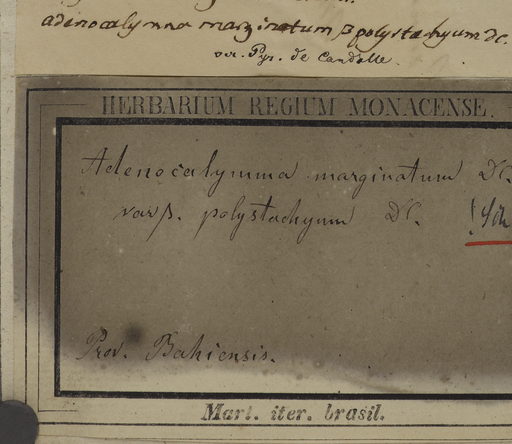 adenocalymna marginatum β polystachyum DC.
Pyr. de Candolle.
HERBARIUM REGIUM MONACENSE.
Adenocalymma marginatum DC.
var β. polystachyum DC.
Prov. Bahiensis.
Mart. iter. brasil.